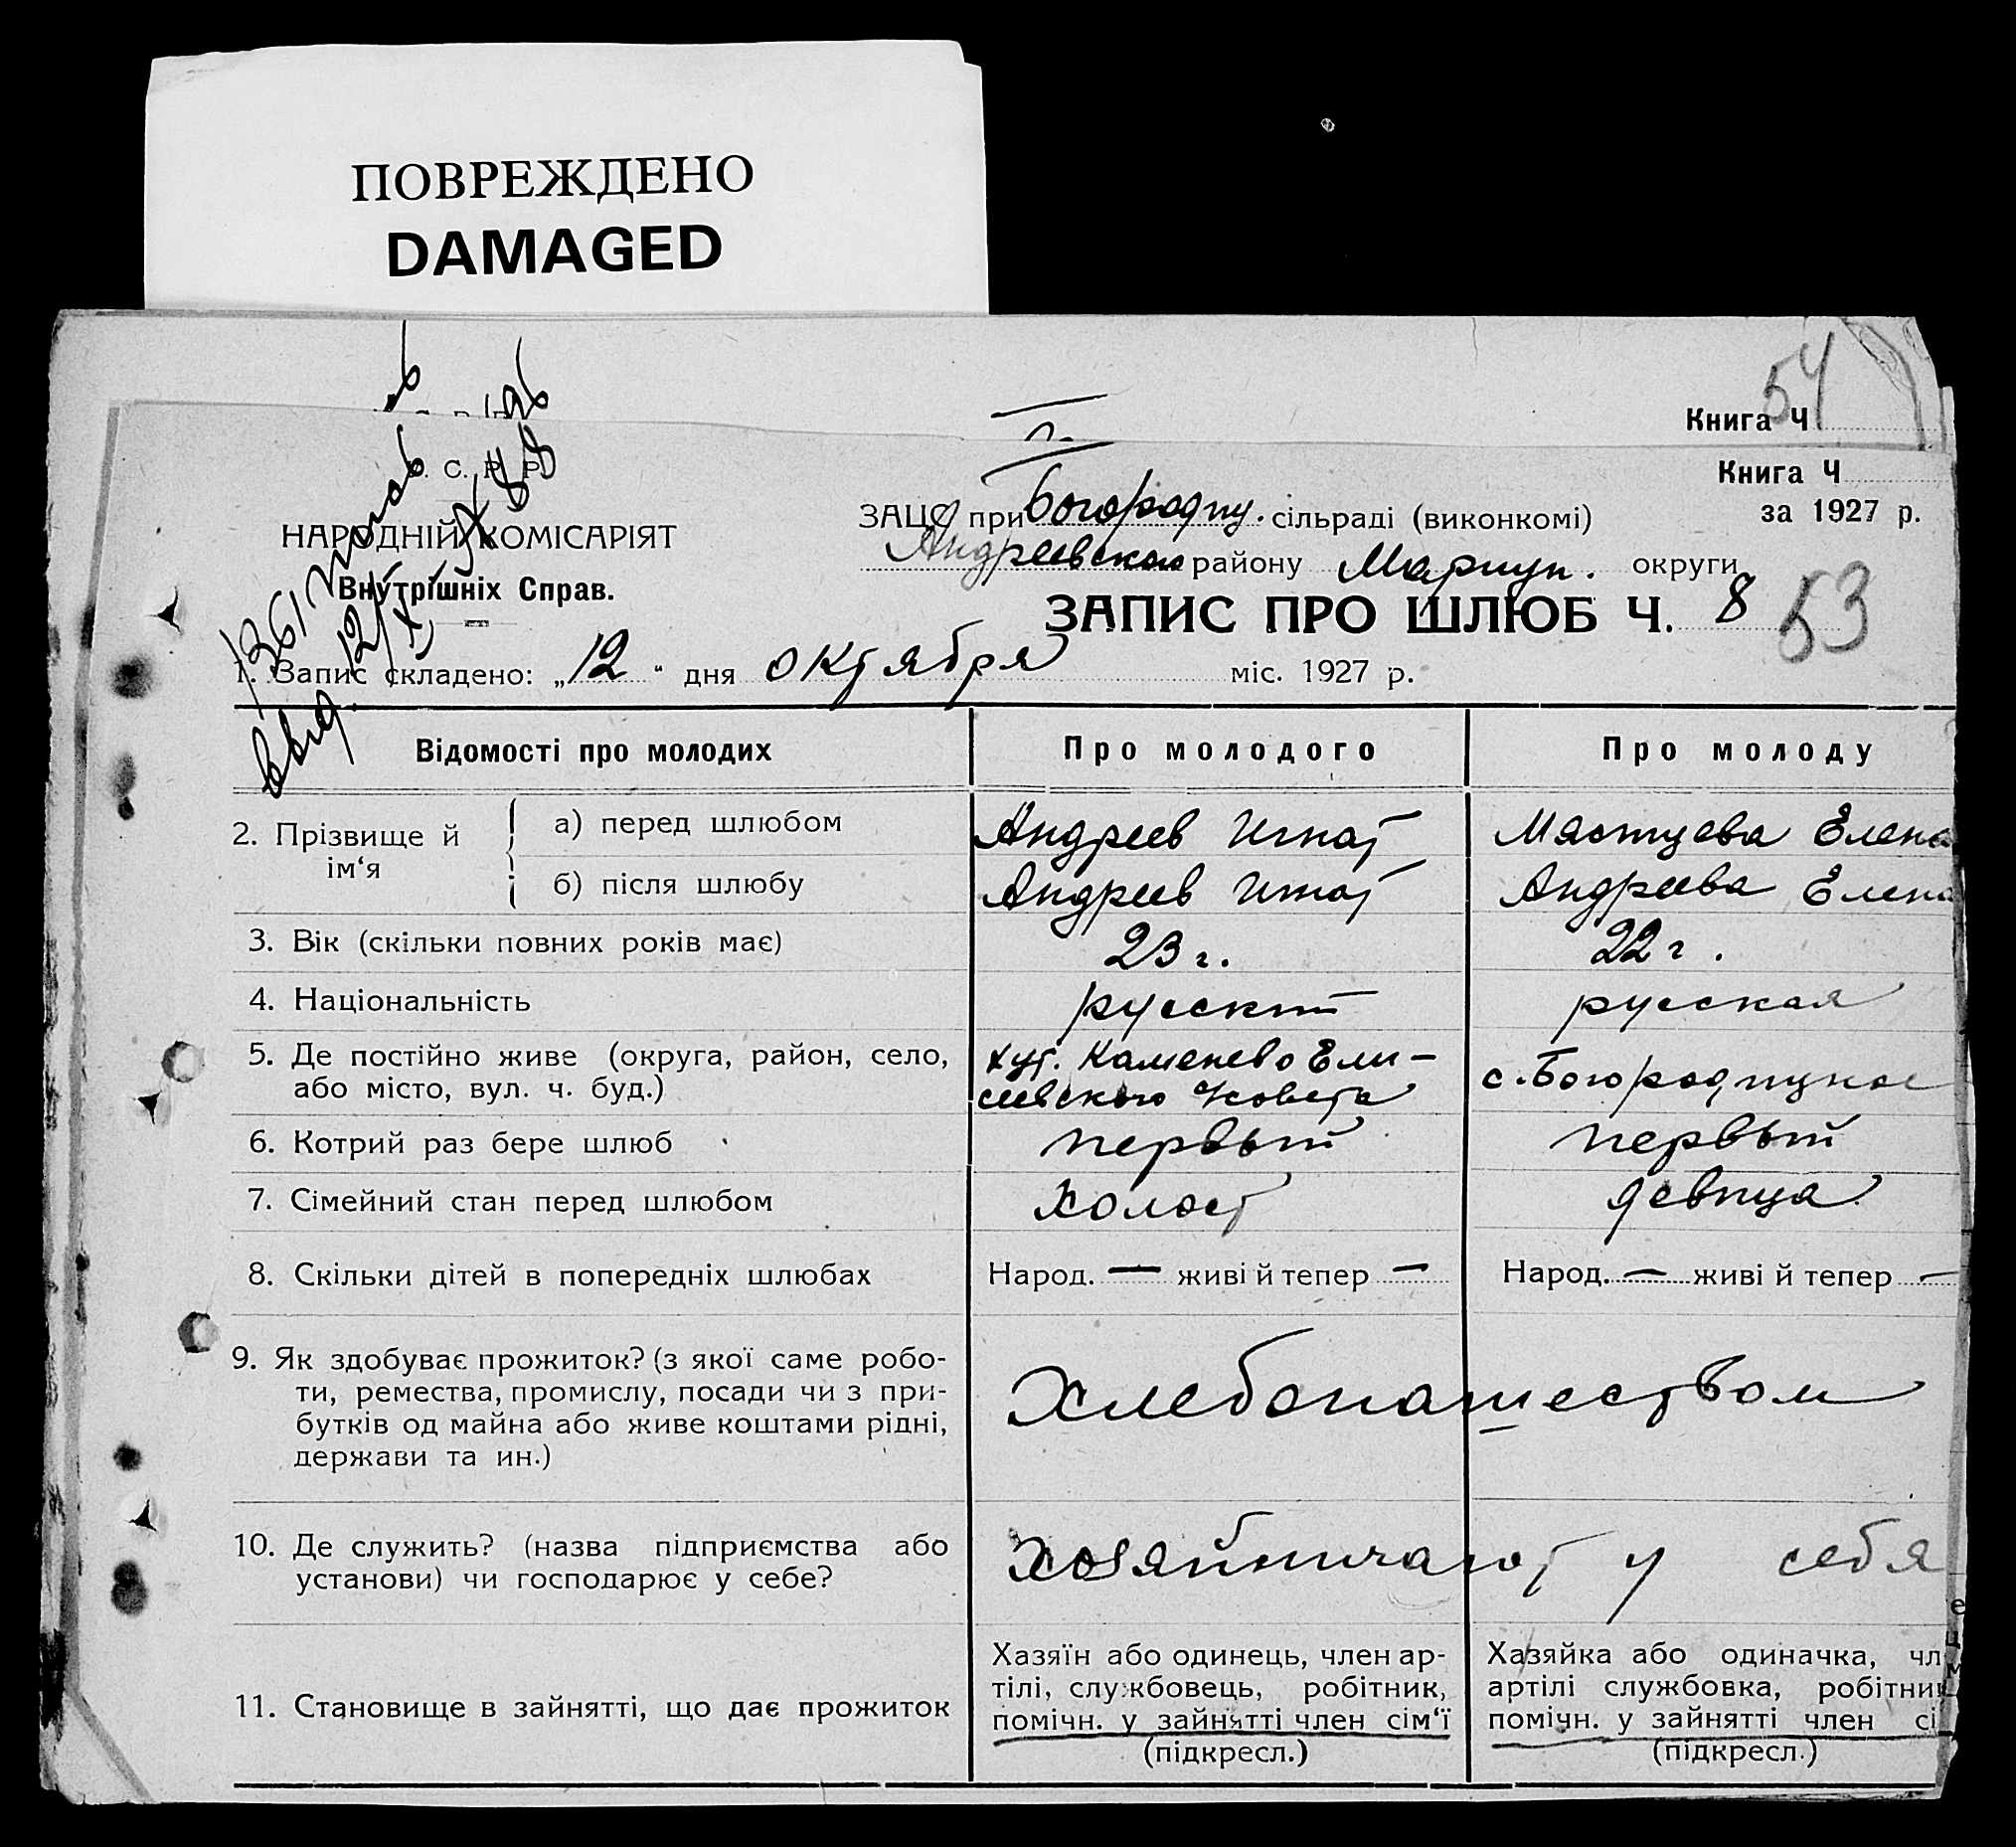 ПОВРЕЖДЕНО
DAMAGED
54
Книга Ч
Книга Ч
за 1927 р.
С. Р. Р.
НАРОДНІЙ КОМІСАРІЯТ
Внутрішніх Справ.
ЗАЦС при Богородиц. сільраді (виконкомі)
Андреевского району Мариуп. округи
ЗАПИС ПРО ШЛЮБ Ч. 8
53
1. Запис складено: „12" дня октября міс. 1927 р.
Відомості про молодих
Про молодого
Про молоду
2. Прізвище й ім'я
а) перед шлюбом
Андреев Игнат
Мястцева Елена
б) після шлюбу
Андреев Игнат
Андреева Елена
3. Вік (скільки повних років має)
23 г.
22 г.
4. Національність
русский
русская
5. Де постійно живе (округа, район, село,
або місто, вул. ч. буд.)
хут. Каменево Ели-
сеевского
с. Богородицкое
6. Котрий раз бере шлюб
первый
первый
7. Сімейний стан перед шлюбом
холост
девица
8. Скільки дітей в попередніх шлюбах
Народ. — живі й тепер —
Народ. — живі й тепер —
9. Як здобуває прожиток? (з якої саме робо-
ти, ремества, промислу, посади чи з при-
бутків од майна або живе коштами рідні,
держави та ин.)
Хлебопашеством
10. Де служить? (назва підприємства або
установи) чи господарює у себе?
хозяйничают у себя
11. Становище в зайнятті, що дає прожиток
Хазяїн або одинець, член ар-
тілі, службовець, робітник,
помічн. у зайнятті член сім'ї
(підкресл.)
Хазяйка або одиначка, чл
артілі службовка, робітни
помічн. у зайнятті член сі
(підкресл.)